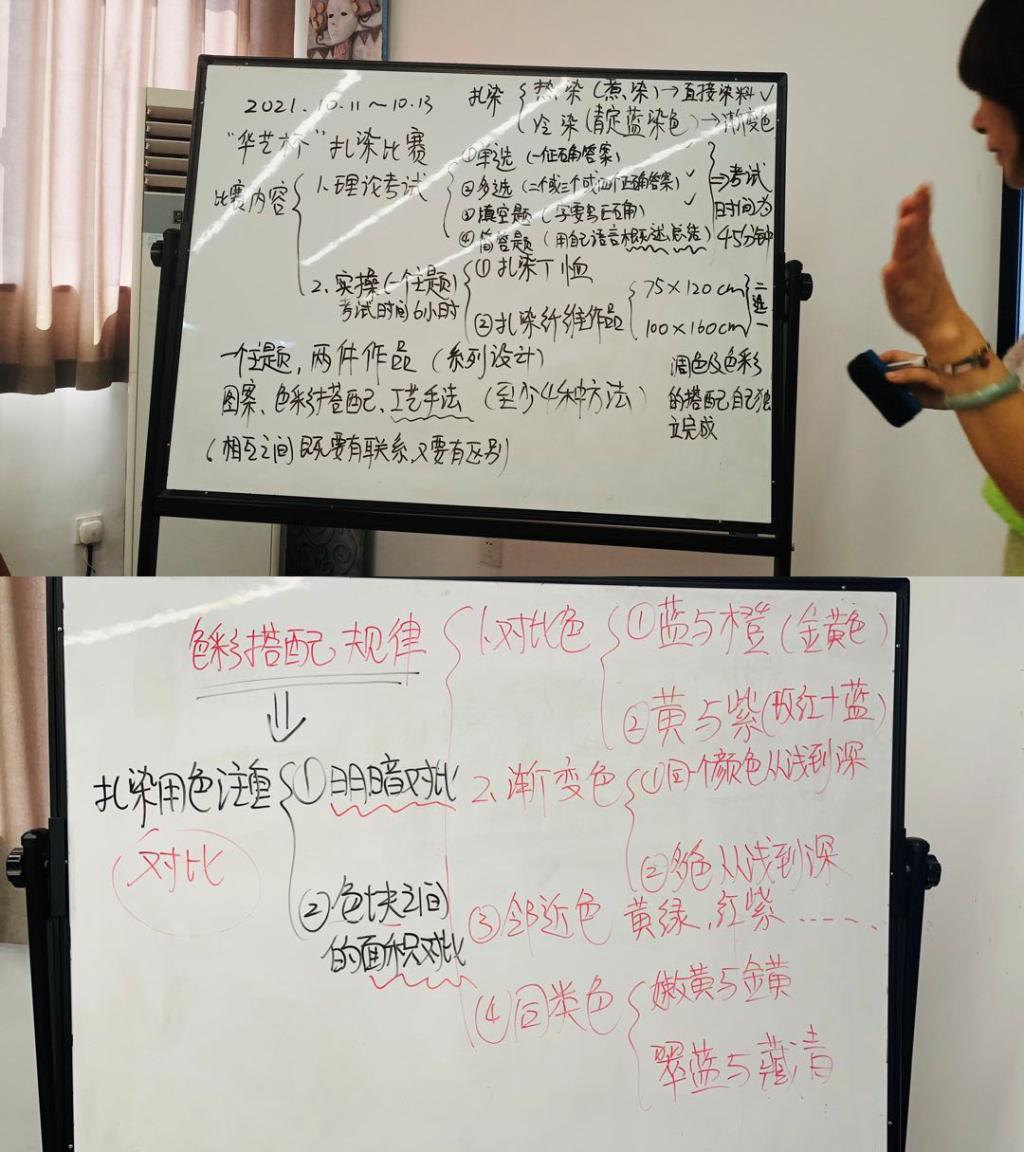 2021.10.11～10.13
扎染 热染(煮、染)→直接染料✓
冷染(靛蓝染色)→渐变色
"华艺杯"扎染比赛
比赛内容
1.理论考试
①单选(一个正确答案)
②多选(二个或三个或四个正确答案)✓
③填空题(字要写正确)✓
④简答题(用自己语言概述总结)
⇒考试
时间为
45分钟
2.实操(一个主题)
考试时间6小时
①扎染T恤
②扎染纤维作品
75×120cm
100×160cm
二选一
一个主题,两件作品(系列设计)
图案、色彩搭配、工艺手法(至少4种方法)
(相互之间既要有联系,又要有区别)
调色及色彩
的搭配自己独
立完成
色彩搭配规律
1、对比色
①蓝与橙(金黄色)
②黄与紫(玫红+蓝)
扎染用色注重
对比
①明暗对比
②色块之间
的面积对比
2、渐变色
①同一个颜色从浅到深
②多色从浅到深
③邻近色 黄绿、红紫……
④同类色
嫩黄与金黄
翠蓝与藏青